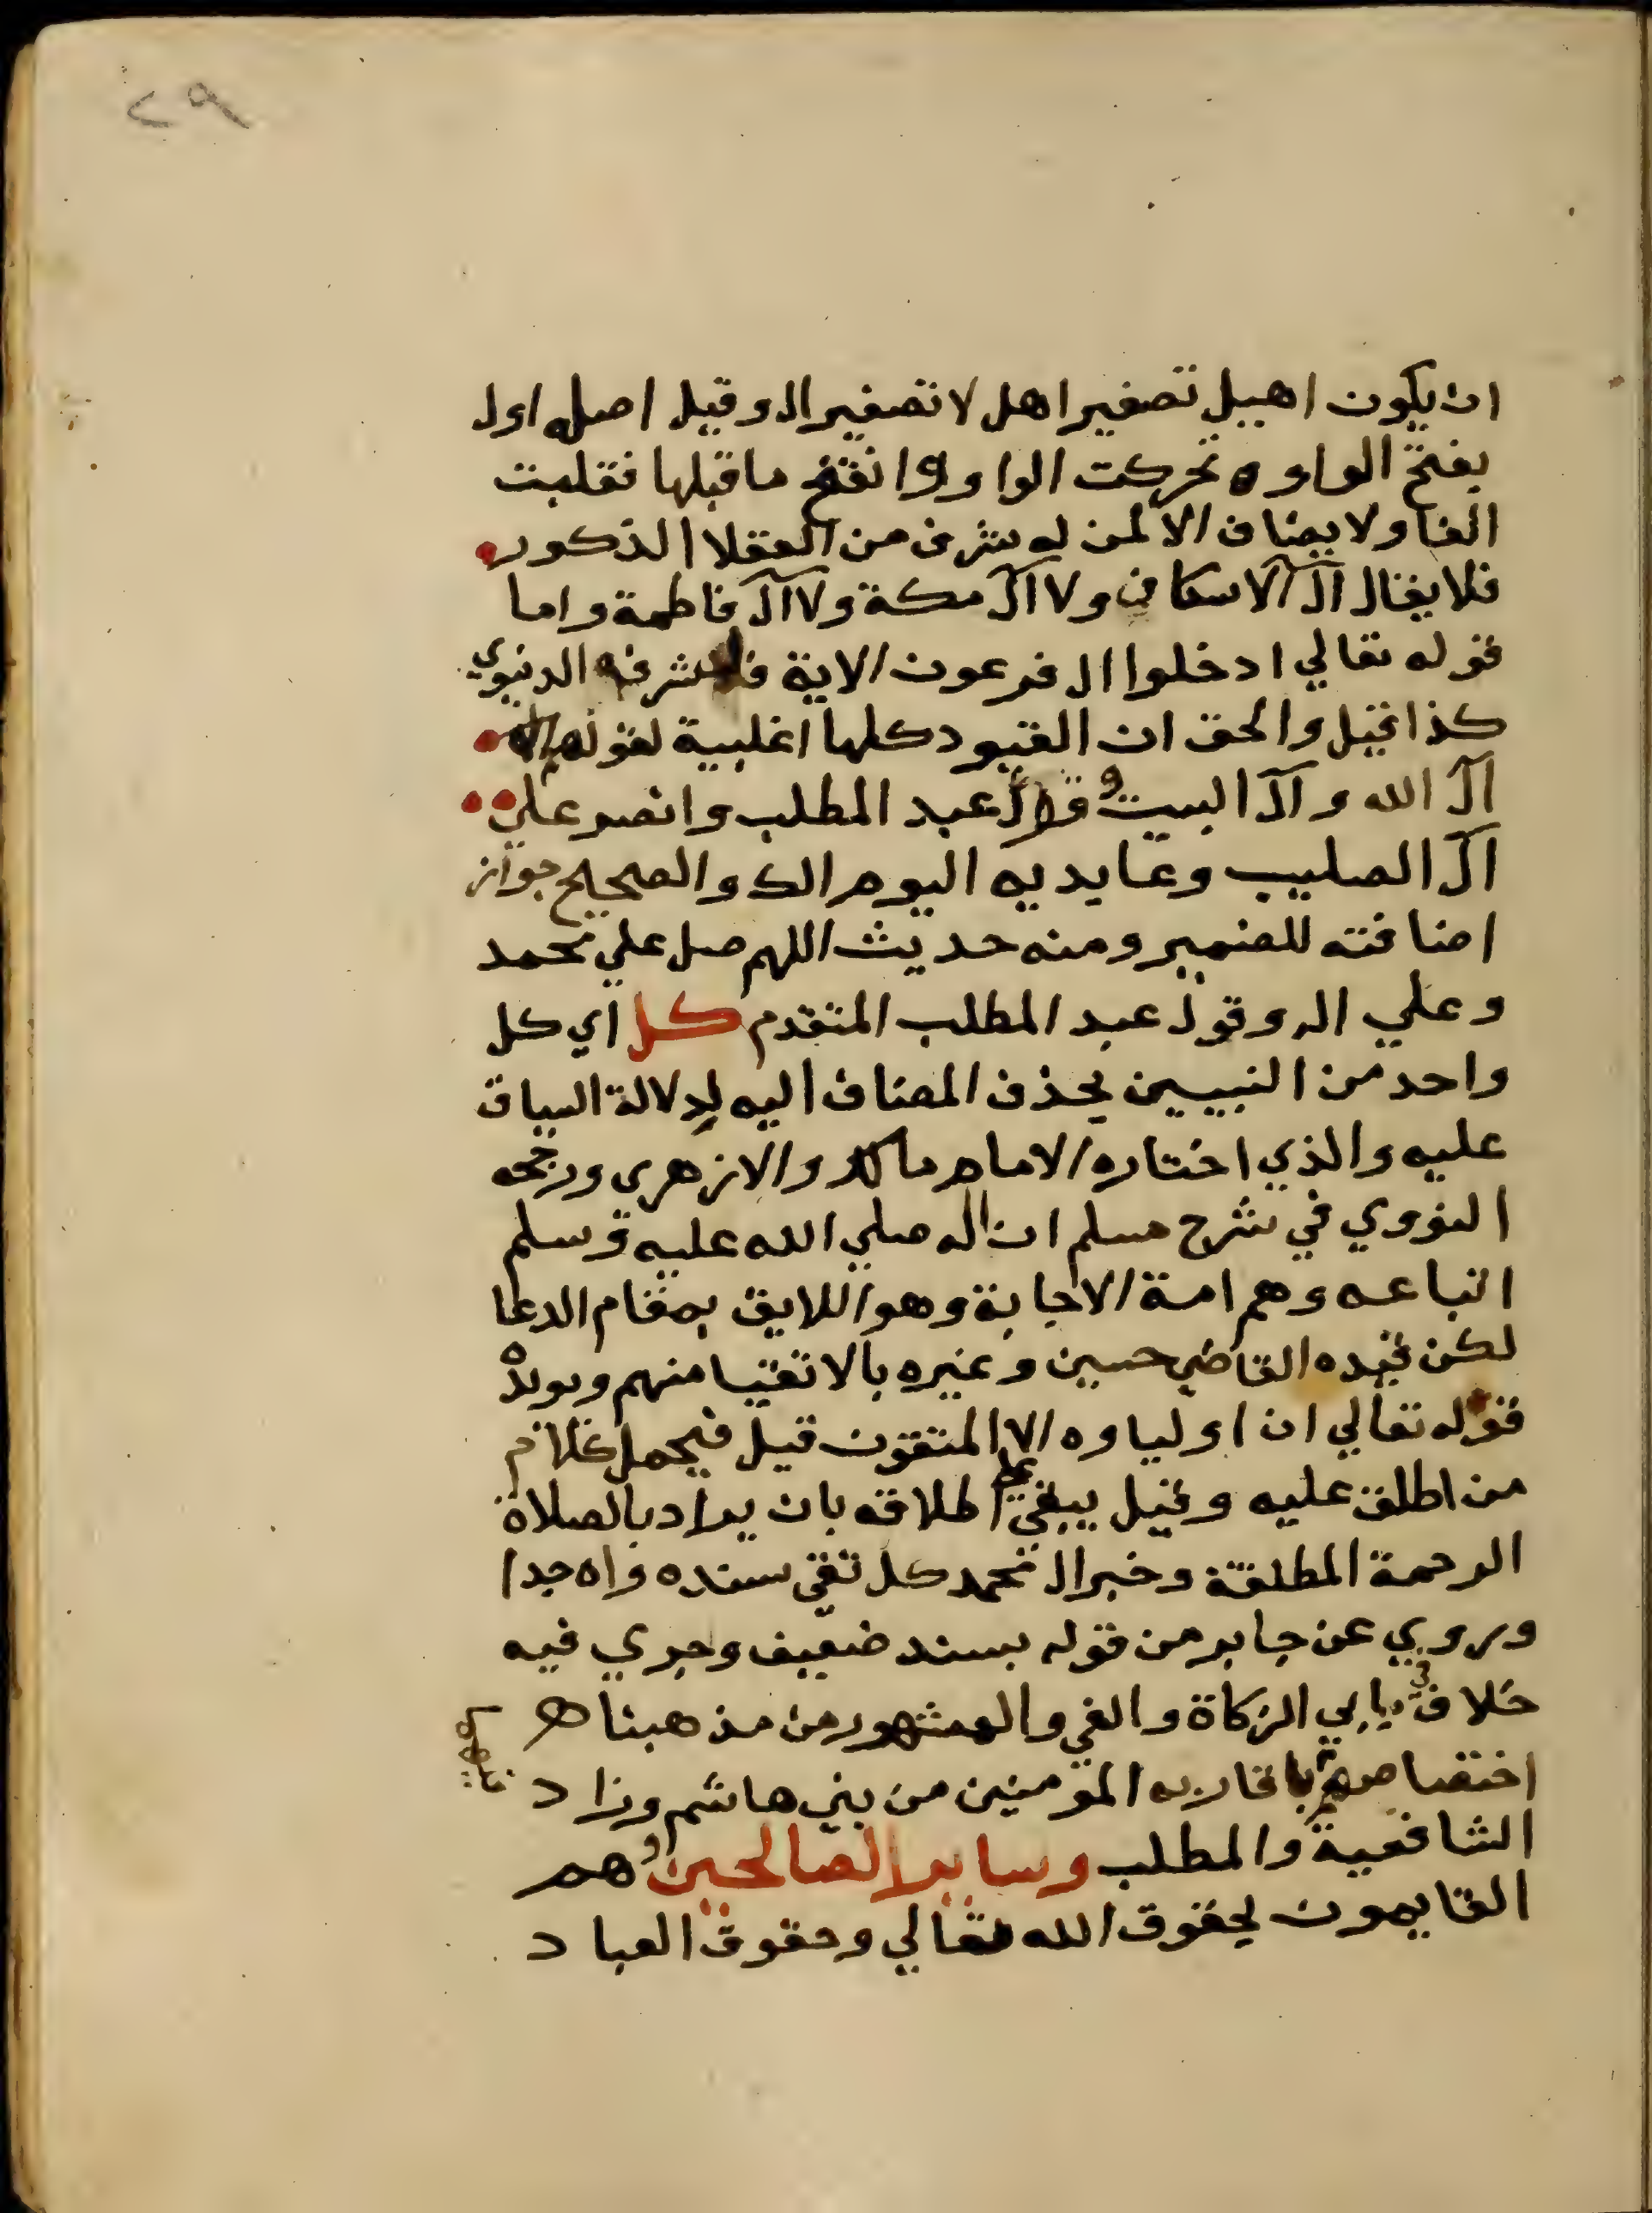 ٢٩
ان يكون اهيل تصغير اهل لا تصغير ال وقيل اصله اول
بفتح الواو تحركت الواو وانفتح ما قبلها فقلبت
الفا ولا يضاف الا لمن له شرف من العقلا الذكور
فلا يقال آل الاسكاف ولا آل مكة ولا آل فاطمة واما
قوله تعالي ادخلوا ال فرعون الاية فلشرفه الدنيوي
كذا قيل والحق ان القيود كلها اغلبية لقولهم
آل الله وآل البيت وقول عبد المطلب وانصر علي
آل الصليب وعابديه اليوم الك والصحيح جواز
اضافته للضمير ومنه حديث اللهم صل علي محمد
وعلي اله وقول عبد المطلب المتقدم كل اي كل
واحد من النبيين بحذف المضاف اليه لدلالة السياق
عليه والذي اختاره الامام مالك والازهري ورجحه
النووي في شرح مسلم ان اله صلي الله عليه وسلم
اتباعه وهم امة الاجابة وهو اللايق بمقام الدعا
لكن قيده القاضي حسين وغيره بالاتقيا منهم ويويده
قوله تعالي ان اولياوه الا المتقون قيل فيحمل كلام
من اطلق عليه وقيل يبقي علي اطلاقه بان يراد بالصلاة
الرحمة المطلقة وخبر ال محمد كل تقي سنده واه جدا
وروي عن جابر من قوله بسند ضعيف وجري فيه
خلاف في بابي الزكاة والفي والمشهور من مذهبنا
اختصاصهم باقاربه المومنين من بني هاشم وزاد
الشافعية والمطلب وساير الصالحين وهم
القايمون بحقوق الله تعالي وحقوق العباد